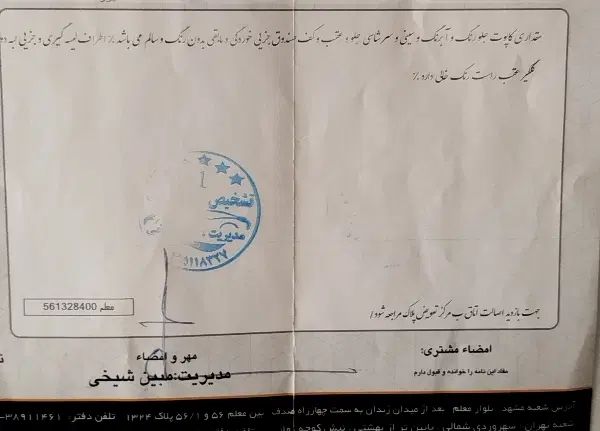 مقداری کاپوت جلو رنگ و آبرنگ و سینی و سرشاسی جلو و عقب و کف صندوق جزیی خوردگی و مابقی بدون رنگ و سالم می باشد٪ اطراف لیسه گیری و جزیی لبه
گلگیر عقب راست رنگ خالی داره٪
تشخیص
مدیریت
۱۱۸۳۲۷
معلم 561328400
جهت بازدید اصالت اتاق ب مرکز تعویض پلاک مراجعه شود/
امضاء مشتری:
مفاد این نامه را خوانده و قبول دارم
مهر و امضاء
مدیریت:مبین شیخی
آدرس شعبه مشهد: بلوار معلم بعد از میدان زندان به سمت چهارراه صدف بین معلم ۵۶ و ۵۶/۱ پلاک ۱۳۲۴ تلفن دفتر: ۳۸۹۱۱۴۶۱-
شعبه تهران: سهروردی شمالی پایین تر از بهشتی